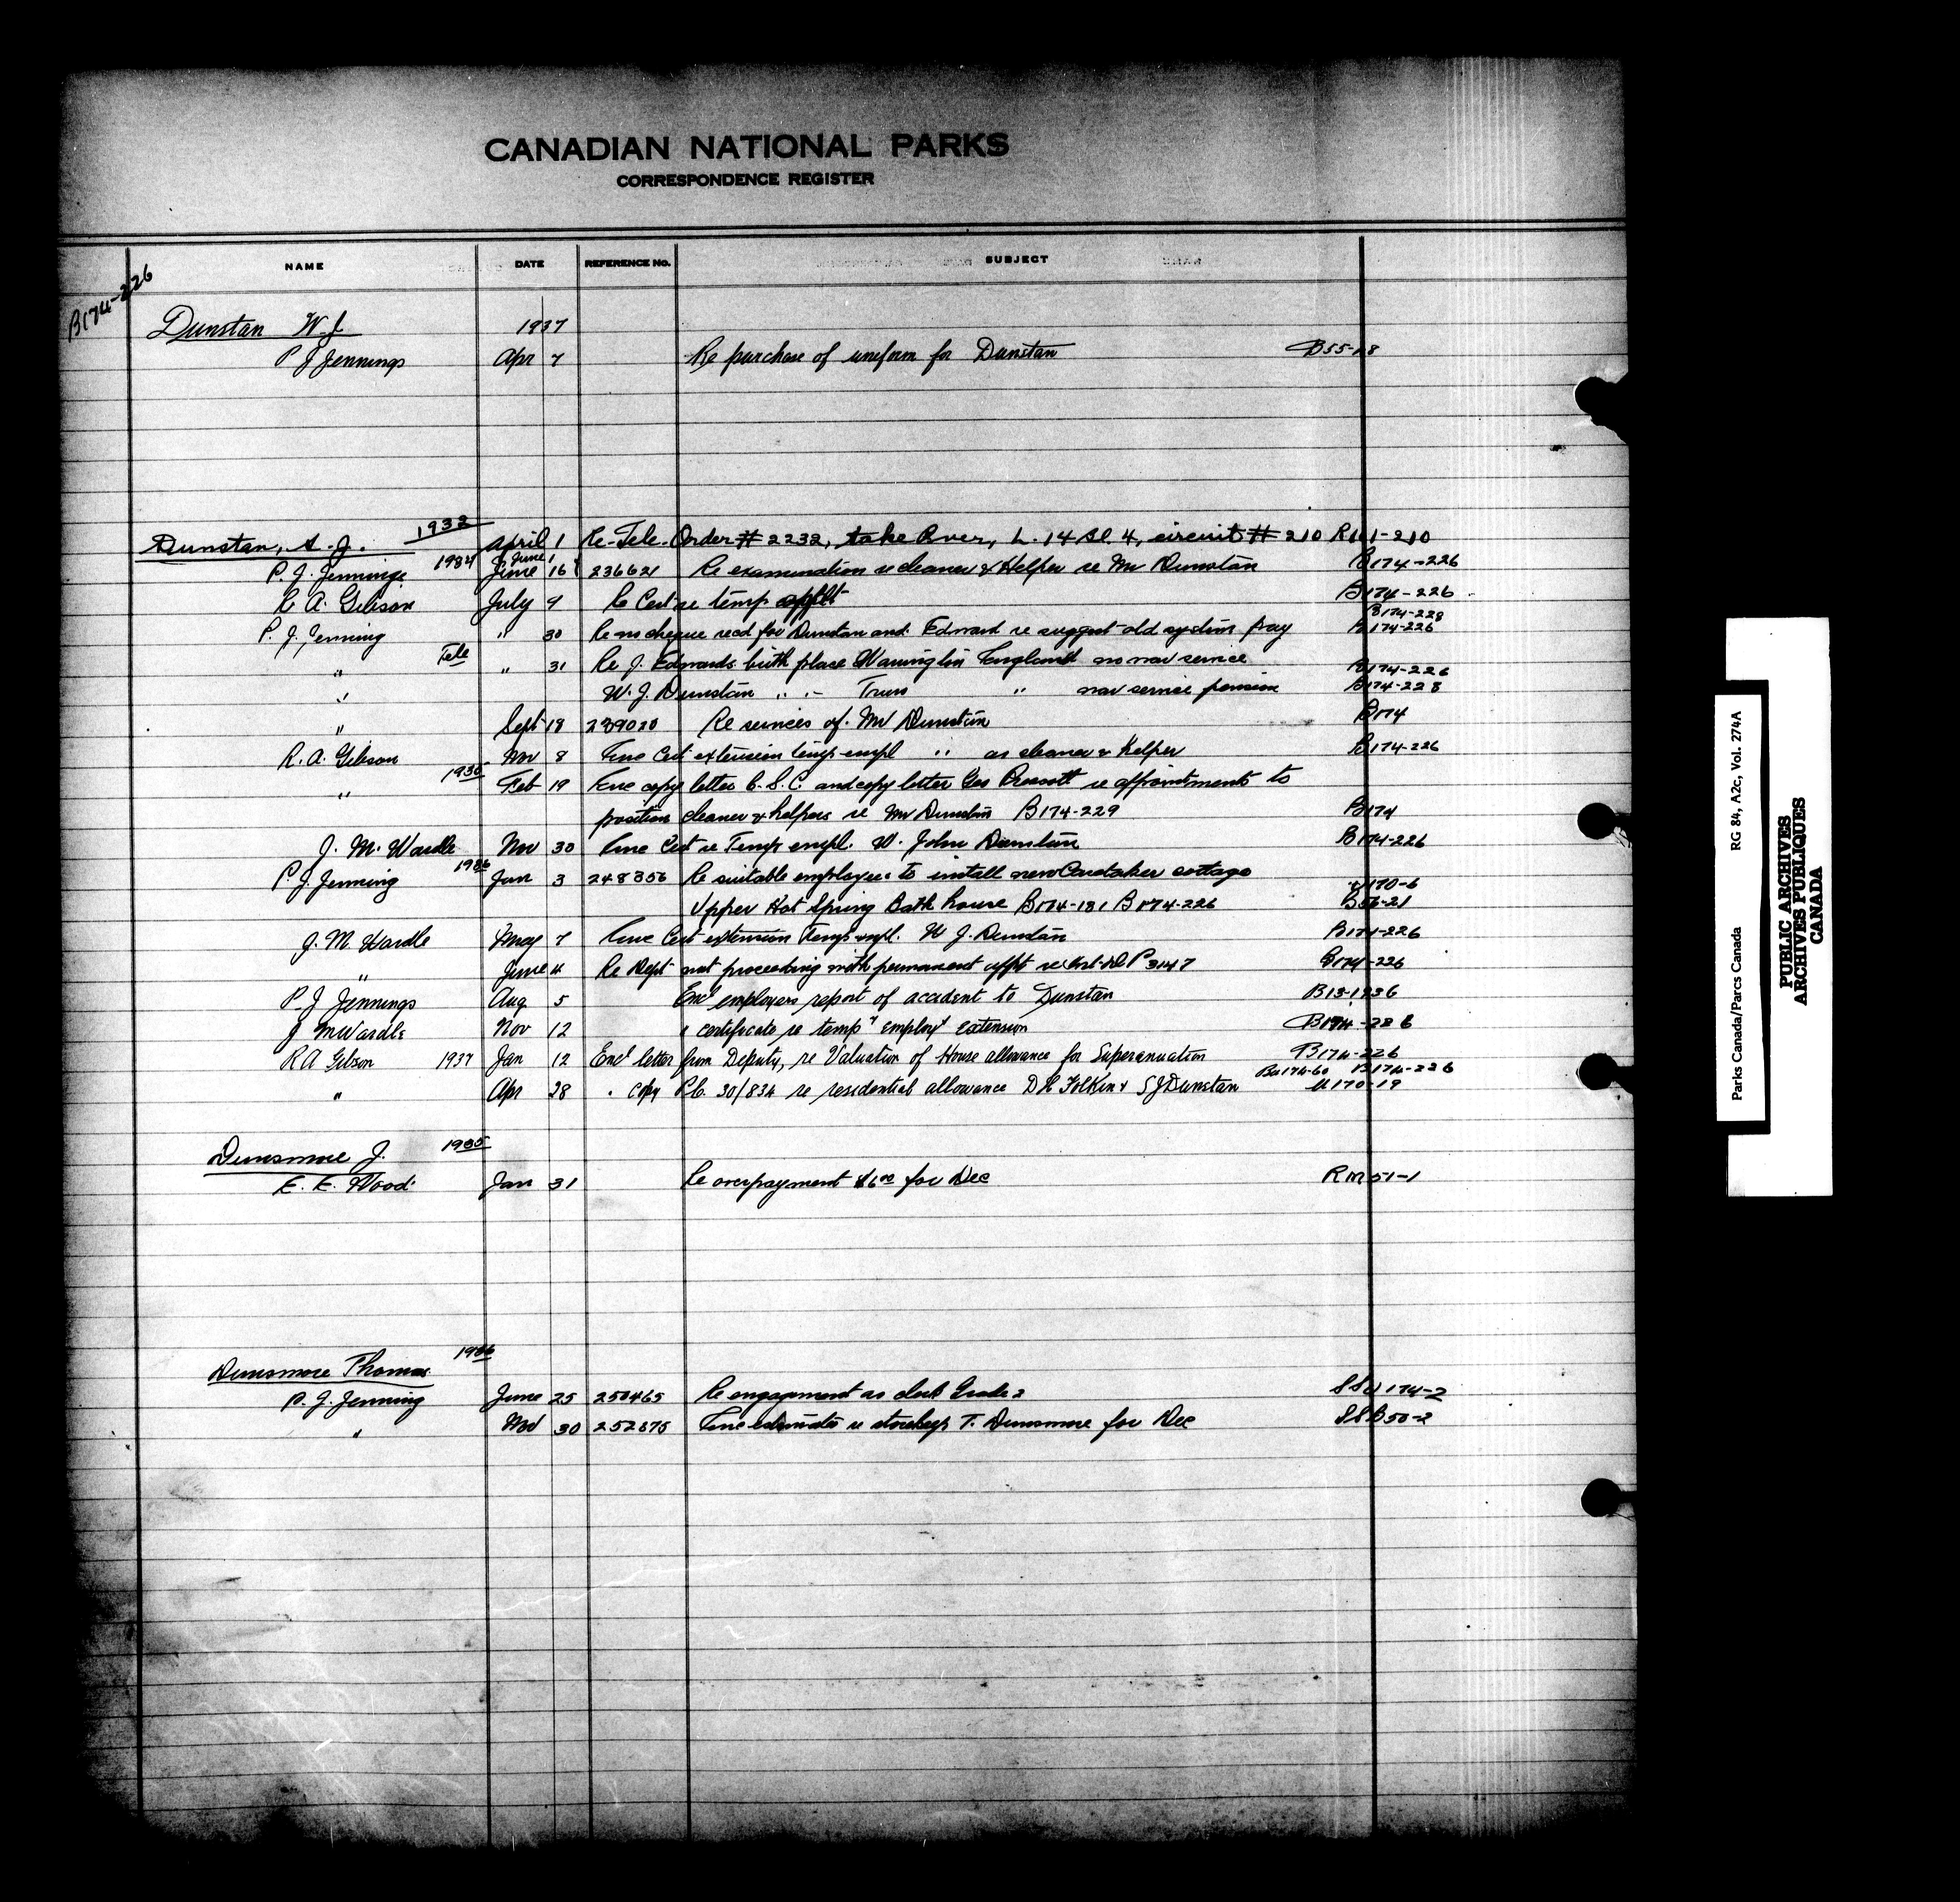 CANADIAN NATIONAL PARKS
CORRESPONDENCE REGISTER
NAME DATE REFERENCE No. SUBJECT
B174-226
Dunstan W J 1937
P J Jennings Apr 7 Re purchase of uniform for Dunstan B55-18
Dunstan, S. J. 1932 April 1 Re-Tele-Order # 2232, take Over, L. 14 Bl. 4, circuit # 210 R101-210
June 1
P. J. Jennings 1934 June 16 236621 Re examination re cleaner & Helper re Mr Dunstan B174-226
R A. Gibson July 9 Re Cert re temp apptt B174-226
B174-228
P. J. Jenning " 30 Re no cheque recd for Dunstan and Edward re suggest old system pay B174-226
" Tele " 31 Re J. Edwards birth place Warrington England no nav service B174-226
" W. J. Dunstan " " Truro " nav service pension B174-228
" Sept 18 239020 Re services of Mr Dunstan B174
R. A. Gibson Nov 8 Enc Cert extension temp empl " as cleaner & helper B174-226
" 1935 Feb 19 Enc copy letter C.S.C. and copy letter Geo Prescott re appointments to
position cleaner & helpers re Mr Dunstan B174-229 B174
J. M. Wardle Nov 30 Enc Cert re Temp empl. W. John Dunstan B174-226
P J Jenning 1936 Jan 3 248356 Re suitable employees to install new Caretaker cottage U170-6
Upper Hot Spring Bath house B174-181 B174-226 B56-21
J. M Wardle May 7 Enc Cert extension Temp empl. W J. Dunstan B174-226
" June 4 Re Dept not proceeding with permanent appt re P 3147 B174-226
P J Jennings Aug 5 Encl employers report of accident to Dunstan B13-1936
J M Wardle Nov 12 " certificate re tempy employt extension B174-226
R A Gibson 1937 Jan 12 Encl letter from Deputy, re Valuation of House allowance for Superanuation B174-226
Bu174-60 B174-226
" Apr 28 " copy P.C. 30/834 re residential allowance D H & S J Dunstan U170-19
Dunsmore J. 1935
E. E. Wood Jan 31 Re overpayment $6.00 for Dec RM 51-1
Dunsmore Thomas 1936
P. J. Jenning June 25 250465 Re engagement as clerk Grade 2 SSU174-2
" Nov 30 252675 Enc estimates re storekeep T. Dunsmore for Dec SSB50-2
Parks Canada/Parcs Canada RG 84, A2c, Vol. 274A
PUBLIC ARCHIVES
ARCHIVES PUBLIQUES
CANADA